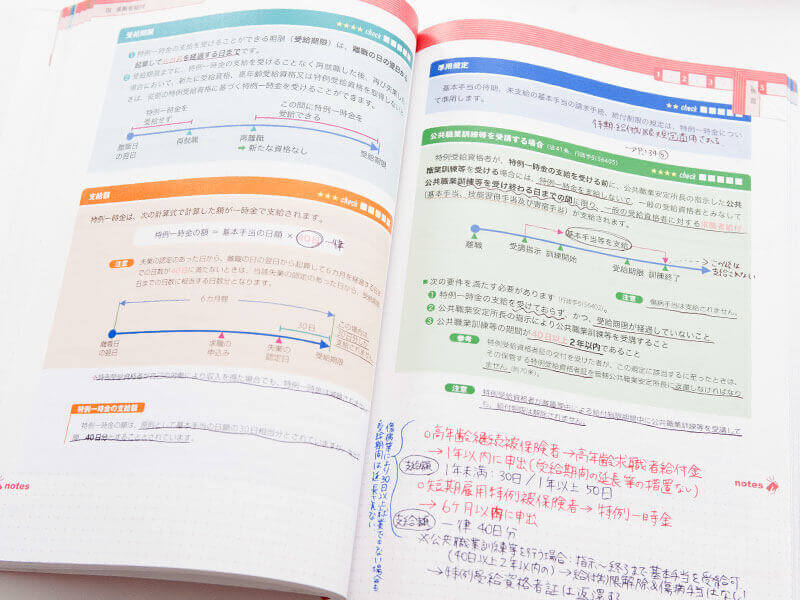 求職者給付
受給期限
★★★★ check
① 特例一時金の支給を受けることができる期限(受給期限)は、離職の日の翌日から
起算して6か月を経過する日までです。
② 受給期限までに、特例一時金の支給を受けることなく再就職した後、再び失業した
場合において、新たに受給資格、高年齢受給資格又は特例受給資格を取得しないと
きは、従前の特例受給資格に基づく特例一時金を受けることができます。
特例一時金を
受給せず
この間に特例一時金を
受給できる
離職日
の翌日
再就職
再離職
→ 新たな資格なし
受給期限
支給額
★★★★ check
特例一時金は、次の計算式で計算した額が一時金で支給されます。
特例一時金の額 = 基本手当の日額 × 40日 一律
注意
失業の認定のあった日から、離職の日の翌日から起算して6カ月を経過する日ま
での日数が40日に満たないときは、当該失業の認定のあった日から、受給期限
日までの日数に相当する日数分となります。
6カ月間
30日
この場合は
支給されません
離職日
の翌日
求職の
申込み
失業の
認定日
受給期限
特例一時金の支給額
特例一時金の額は、原則として基本手当の日額の30日相当分とされていますが、
間、40日分とすることとされています。
notes
準用規定
★★ check
基本手当の待期、未支給の基本手当の請求手続、給付制限の規定は、特例一時金につい
て準用します。
公共職業訓練等を受講する場合(法41条、行政手引56405)
★★★★ check
特例受給資格者が、特例一時金の支給を受ける前に、公共職業安定所長の指示した公共
職業訓練等を受ける場合には、特例一時金を支給しないで、一般の受給資格者とみなして
公共職業訓練等を受け終わる日までの間に限り、一般の受給資格者に対する求職者給付
(基本手当、技能習得手当及び寄宿手当)が支給されます。
基本手当等を支給
離職
受講指示
訓練開始
受給期限
訓練終了
この後は
支給されない
注意
傷病手当は支給されません。
■ 次の要件を満たす必要があります(行政手引56402)。
① 特例一時金の支給を受けておらず、かつ、受給期限が経過していないこと
② 公共職業安定所長の指示により公共職業訓練等を受講すること
③ 公共職業訓練等の期間が40日以上2年以内であること
参考
特例受給資格者証の交付を受けた者が、この規定に該当するに至ったときは、
その保管する特例受給資格者証を管轄公共職業安定所長に返還しなければなり
ません(則70条)。
注意
特例受給資格者が離職理由による給付制限期間中に公共職業訓練等を受講して
も、給付制限は解除されません。
○高年齢継続被保険者→高年齢求職者給付金
→1年以内に申出(受給期間の延長等の措置ない)
支給額 1年未満:30日/1年以上50日
○短期雇用特例被保険者→特例一時金
→6ケ月以内に申出
支給額 一律40日分
※公共職業訓練等を行う場合:指示〜終了まで基本手当を受給可
(40日以上2年以内の)→給付制限解除&傷病手当はなし!
→特例受給資格者証は返還する
notes